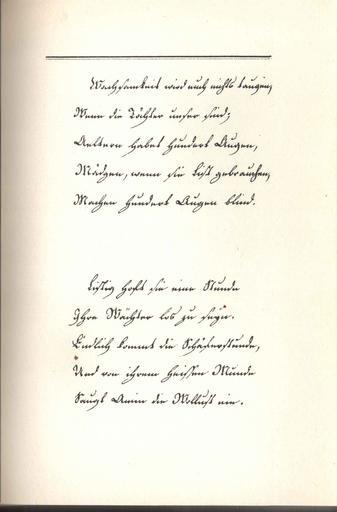 Wachsamkeit wird auch nichts taugen,
Wenn die Töchter unser sind;
Aeltern habet hundert Augen,
Mädgen, wenn sie List gebrauchen,
Machen hundert Augen blind.
Listig hoft sie eine Stunde
Ihre Wächter los zu seyn.
Endlich kommt die Schäferstunde,
Und von ihrem heissen Munde
Saugt Amin die Wollust ein.